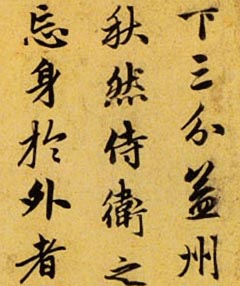 下三分益州
秋然侍衛之
忘身於外者